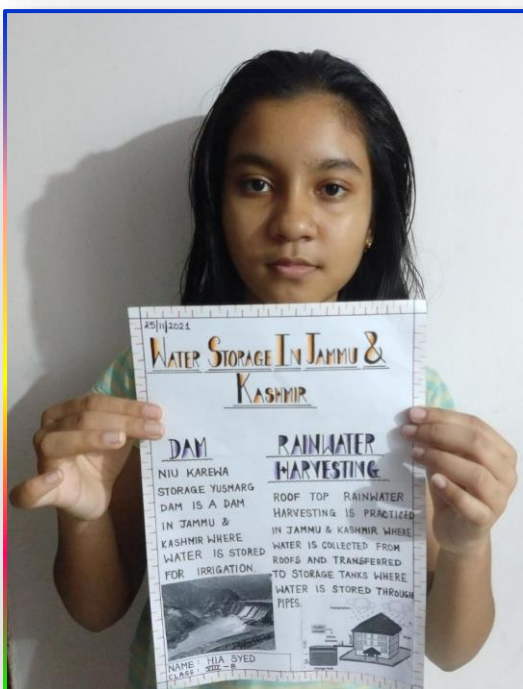 25/11/2021
WATER STORAGE IN JAMMU &
KASHMIR
DAM
NIU KAREWA
STORAGE YUSMARG
DAM IS A DAM
IN JAMMU &
KASHMIR WHERE
WATER IS STORED
FOR IRRIGATION.
RAINWATER
HARVESTING
ROOF TOP RAINWATER
HARVESTING IS PRACTICED
IN JAMMU & KASHMIR WHERE
WATER IS COLLECTED FROM
ROOFS AND TRANSFERRED
TO STORAGE TANKS WHERE
WATER IS STORED THROUGH
PIPES.
NAME: HIA SYED
CLASS: VIII-B